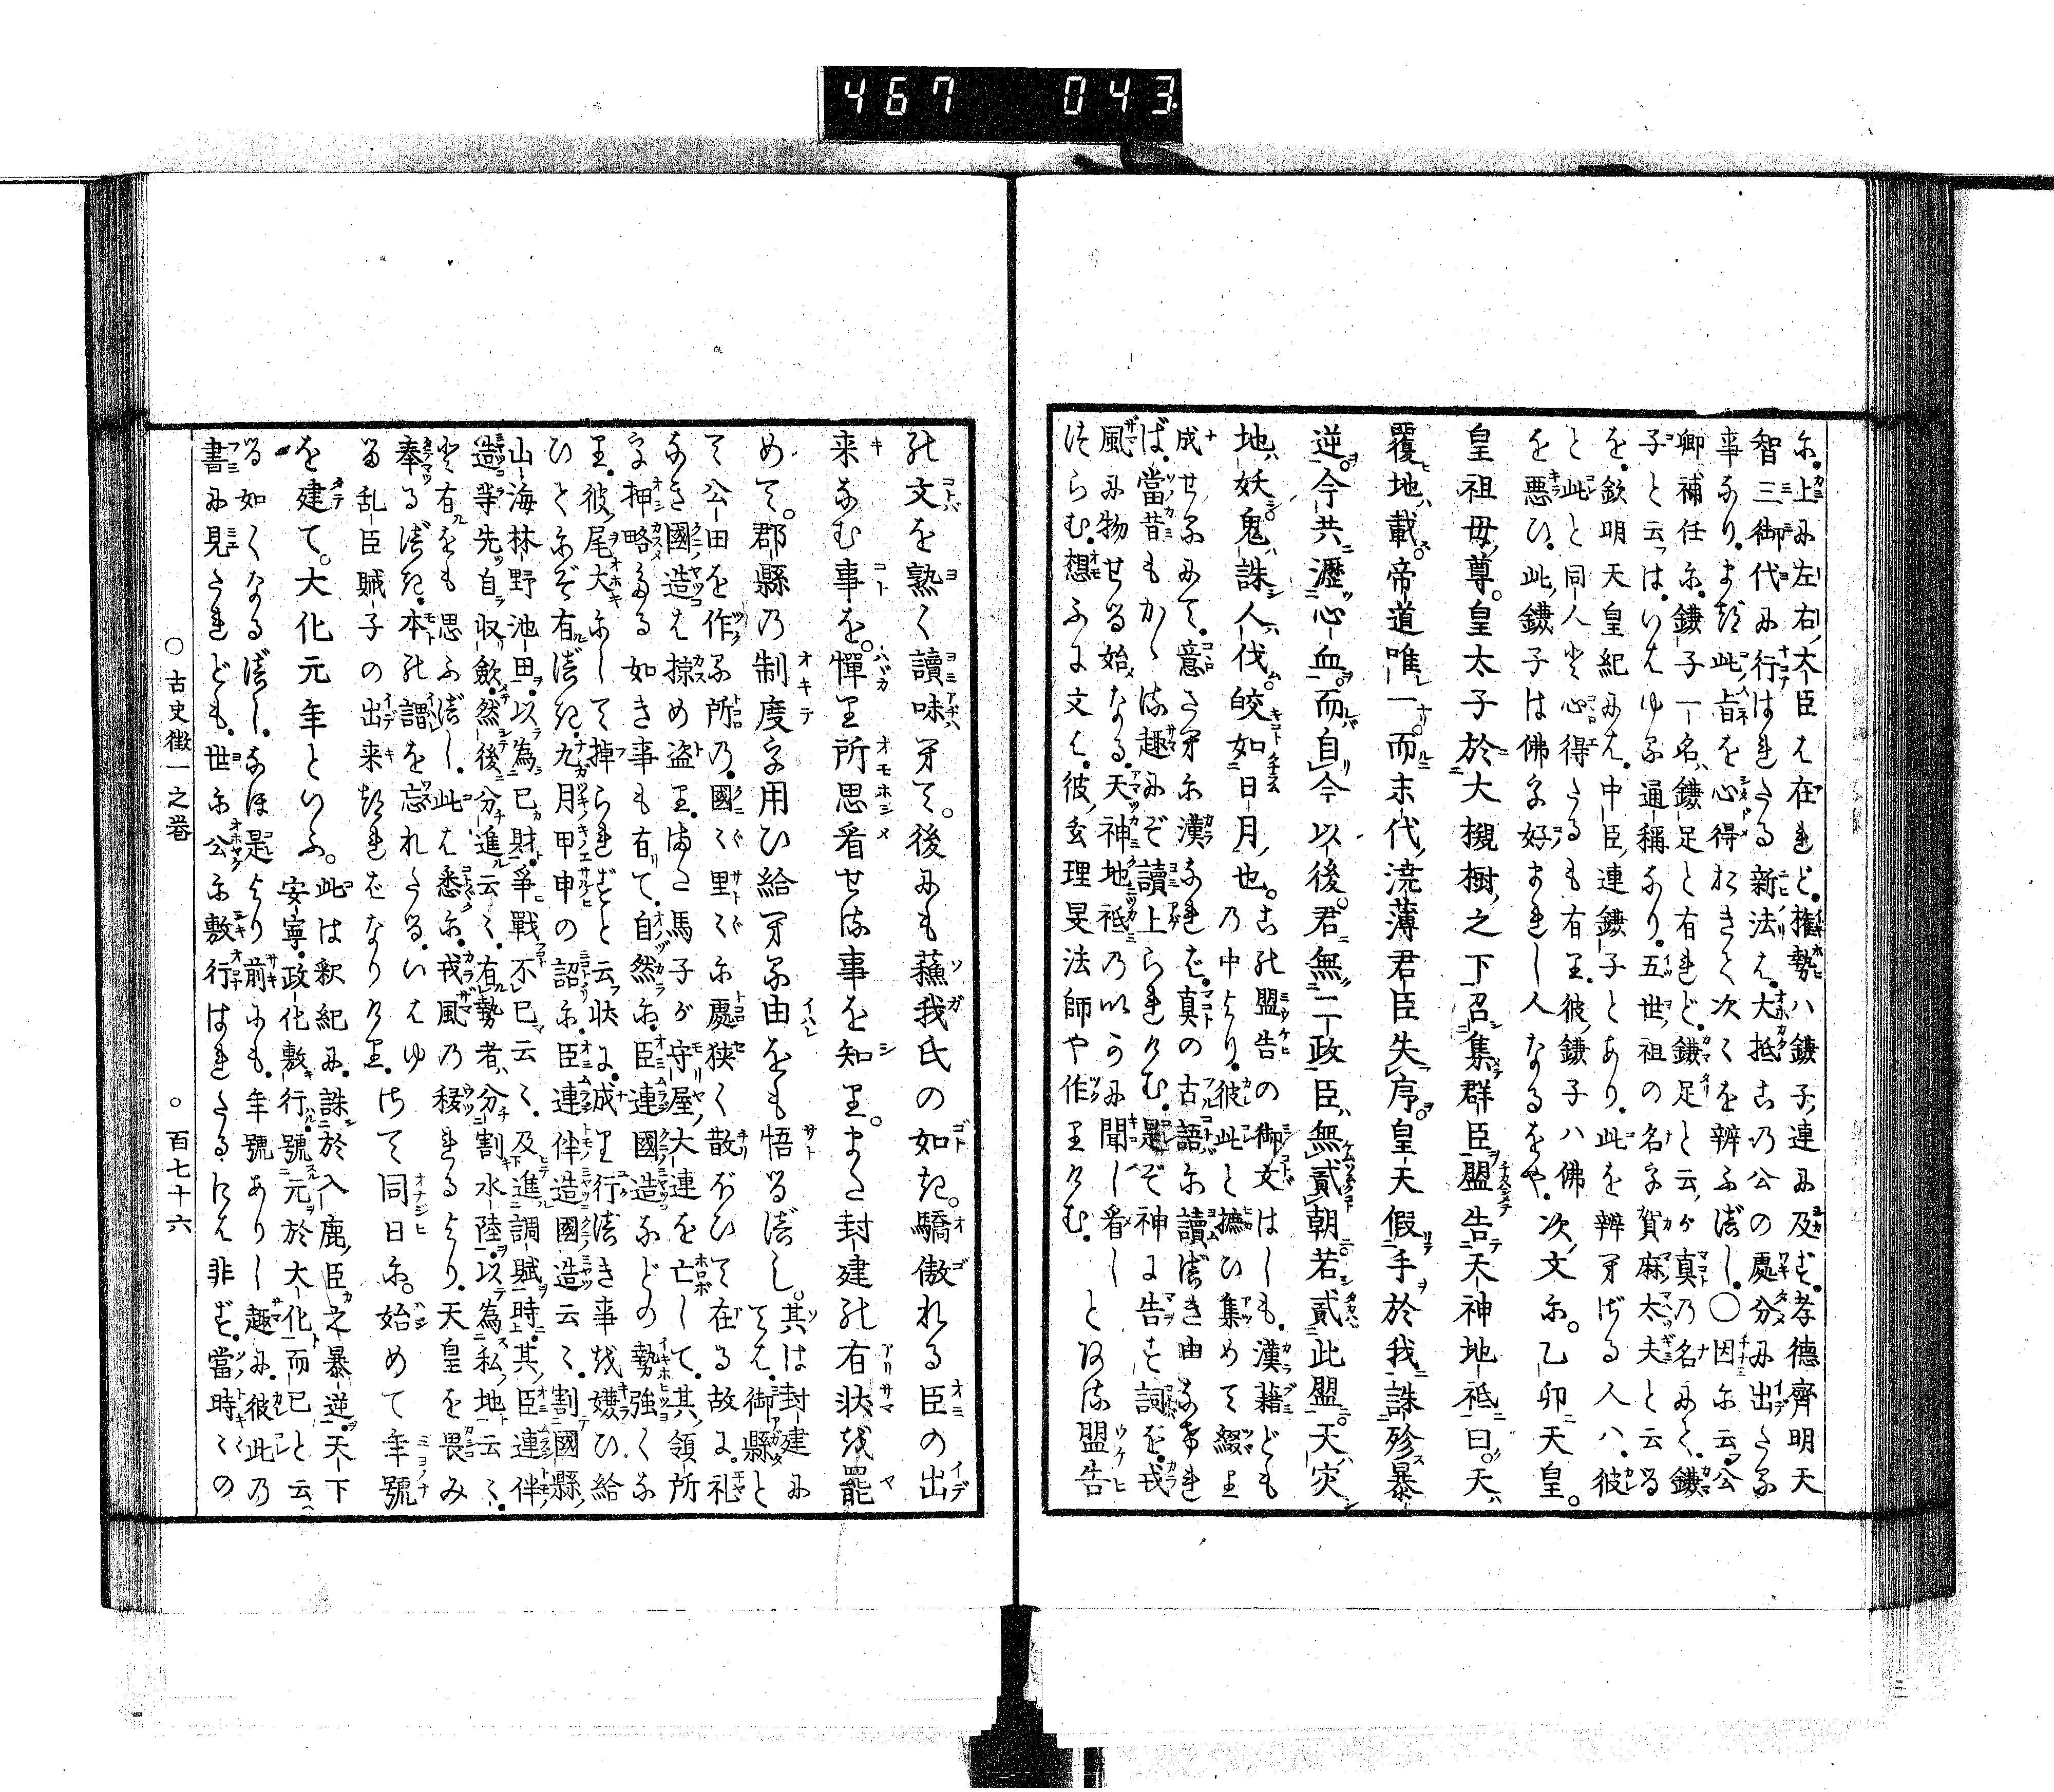 467 043
尓。上に左右大臣は在れど。権勢ハ鎌子連に及ず。孝德齊明天
智三御代に行はれたる新法は。大抵この公の處分に出たる
事なり。まづ此旨を心得おきて次々を辨ふべし。〇因尓云公
卿補任尓。鎌子一名鎌足と有れど。鎌足と云が真乃名にて。鎌
子と云は。いはゆる通稱なり。五世祖の名字賀麻太夫と云る
を。欽明天皇紀には。中臣連鎌子とあり。此を辨まへざる人ハ。彼
と此と同人と心得たるも有り。彼鎌子ハ佛
を悪ひ。此鎌子は佛を好まれし人なるをや。次文尓。乙卯天皇。
皇祖母尊。皇太子於大槻樹之下召集群臣盟告天神地祇曰。天
覆地載。帝道唯一。而末代澆薄君臣失序。皇天假手於我誅殄暴
逆。今共瀝心血。而自今以後。君無二政臣無貳朝若貳此盟。天灾
地妖。鬼誅人伐。皎如日月也。この盟告の御文はしも。漢籍ども
乃中より。彼此と摭ひ集めて綴り
成せるにて。意さへ尓漢なれば。真の古語尓讀べき由なければ
ば。當昔もかゝる趣にぞ讀上られけむ。是ぞ神に告す詞を。戎
風に物せる始なる。天神地祇乃いかに聞し看しとかる盟告
つらむ。想ふに文は。彼玄理旻法師や作りけむ。
の文を熟く讀味へて。後にも蘓我氏の如き。驕傲れる臣の出
来なむ事を。憚り所思看せる事を知り。また封建の有状を罷
めて。郡縣乃制度を用ひ給へる由をも悟るべし。其は封建に
ては。御縣と
て公田を作る所乃。國々里々尓處狹く散ぼひて在る故に。礼
なき國造は掠め盗り。また馬子が守屋大連を亡して。其領所
を押略る如き事も有て。自然尓。臣連國造などの勢強くな
り。彼尾大尓して掉られずと云状に。成り行べき事を嫌ひ給
ひと尓ぞ有べき。九月甲申の詔尓。臣連伴造國造云々。割國縣
山海林野池田。以為己財。爭戰不已云々。及進調賦時。其臣連伴
造等先自収歛。然後分進云々。有勢者分割水陸。以為私地云々。
と有をも思ふべし。此は悉尓。戎風乃移れるより。天皇を畏み
奉るべき。本の謂を忘れたる。いはゆ
る乱臣賊子の出来ればなりけり。かくて同日尓。始めて年號
を建て。大化元年といふ。此は釈紀に。誅於入鹿臣之暴逆。天下
安寧。政化敷行。號元於大化而已と云
る如くなるべし。なほ是より前にも。年號ありし趣に。彼此乃
書に見えたれども。世尓公尓敷行はれたるには非ず。當時々の
〇古史徴一之巻
〇百七十六